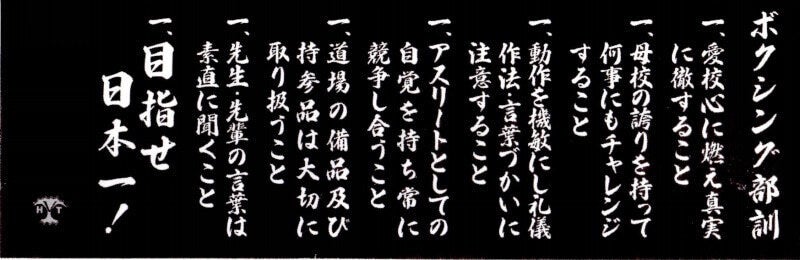 ボクシング部訓
一、愛校心に燃え真実
に徹すること
一、母校の誇りを持って
何事にもチャレンジ
すること
一、動作を機敏にし礼儀
作法・言葉づかいに
注意すること
一、アスリートとしての
自覚を持ち常に
競争し合うこと
一、道場の備品及び
持参品は大切に
取り扱うこと
一、先生・先輩の言葉は
素直に聞くこと
一、目指せ
日本一！
H T